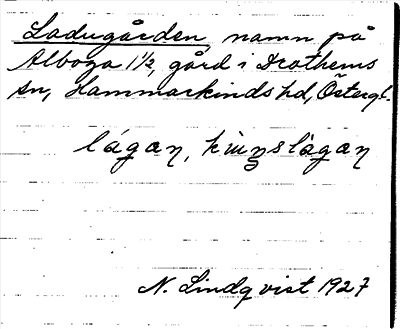 Ladugården, namn på
Alboga 1½, gård i Drothems
sn, Hammarkinds hd, Östergl.
lágan,
N. Lindqvist 1927